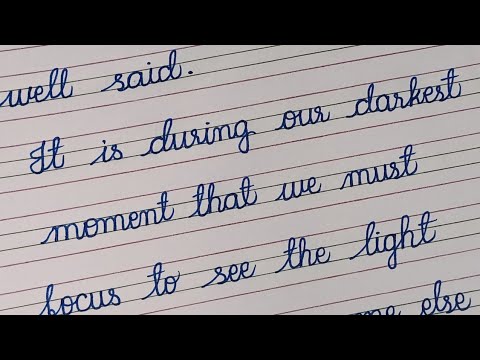 well said.
It is during our darkest
moment that we must
focus to see the light
else